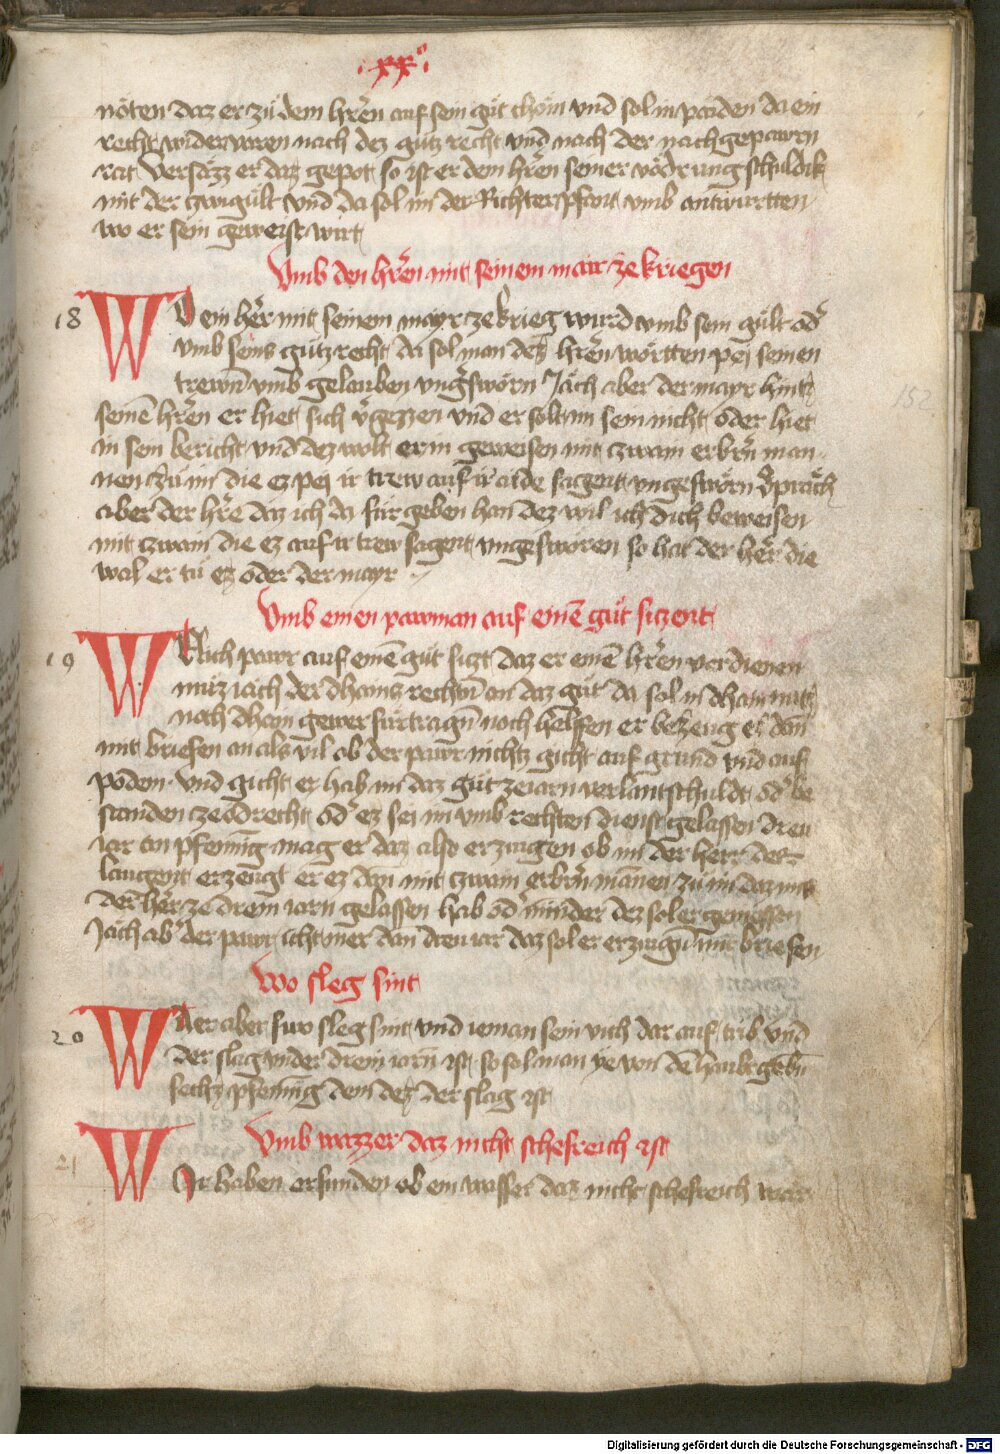 ·xx°·
nöten daz er zů dem hr̄en auf sein gůt chöm vnd sol im paiden da ein
recht widervaren nach dez gůtz recht vnd nach der nachgepawrn
rat Versäzz er daz gepot so ist er dem hr̄en seiner vödrung schuldik
mit der zwigült vnd da sol im der Richter pfant vmb antwurtten
wo er sein geweist wirt
Vmb den hr̄en mit seinem mair ze kriegen
18 WO ein hēr mit seinem mayr ze krieg wurd vmb sein gült od̓
vmb seins gůtz recht da sol man dez hr̄en wörtten pej seinen
trewn̄ vmb gelauben vng̓sworn Jäch aber der mayr hintz
seinē hr̄en er hiet sich v̓gezzen vnd er solt im sein nicht oder hiet
in sein bericht vnd dez wolt er in geweisen mit zwain erbr̄n man
nen zů im die ez pej ir trew auf ir aide sagent vngesworn v̓präch
aber der hr̄e daz ich da für geben han dez wil ich dich beweisen
mit zwain die ez auf ir trew sagent vngesworen so hat der hēr die
wal er tů ez oder der mayr
Vmb einen pawman auf einē gůt siczent
19 WElich pawr auf einē gůt siczt daz er einē hr̄en verdienen
můz iäch der dhains rechtn̄ an daz gůt da sol in dhain nutz
noch dhain gewer fürtragn̄ noch helffen er bezeug ez dan̄
mit briefen an als vil ob der pawr nichtz gicht auf grund vnd auf
podem· vnd gicht er hab im daz gůt ze iarn verlan vmb schuldt od̓ be
standen ze odrecht od̓ ez sei im vmb rechten dienst gelassen dreu
iar an pfenning mag er daz also erzeugen ob im der herr dez
laugent erzeugt er ez dan mit zwain erbr̄n mannen zů im daz ims
der hēr ze drein iarn gelassen hab od̓ minder dez sol er geniessen
Jäch ab̓ der pawr icht mer dan dreu iar daz sol er erzeugn̄ mit briefen
Wo sleg sint
20 WEr aber fuw sleg sint vnd ieman sein vich dar auf trib vnd
der slag vnder drein iarn̄ ist so sol man ye von dē haubt gebn̄
sechz pfenning dem dez der slag ist
Vmb wazzer daz nicht schefreich ist
21 WIr haben erfunden ob ein wasser daz nicht schefreich wär
152
Digitalisierung gefördert durch die Deutsche Forschungsgemeinschaft - DFG